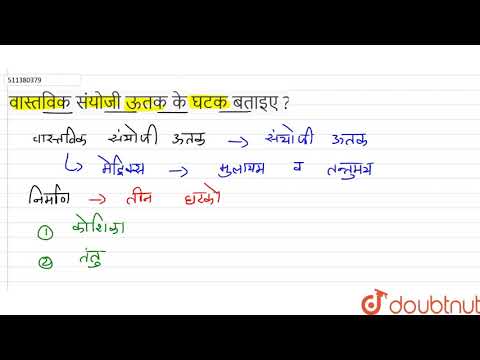 511380379
वास्तविक संयोजी ऊतक के घटक बताइए ?
वास्तविक संयोजी ऊतक → संयोजी ऊतक
↳ मेट्रिक्स → मुलायम व तन्तुमय
निर्माण → तीन घटको
① कोशिका
② तंतु
doubtnut